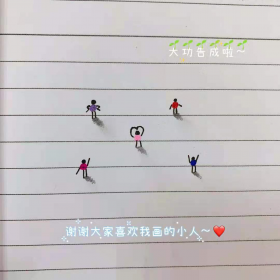 大功告成啦~
谢谢大家喜欢我画的小人~❤️